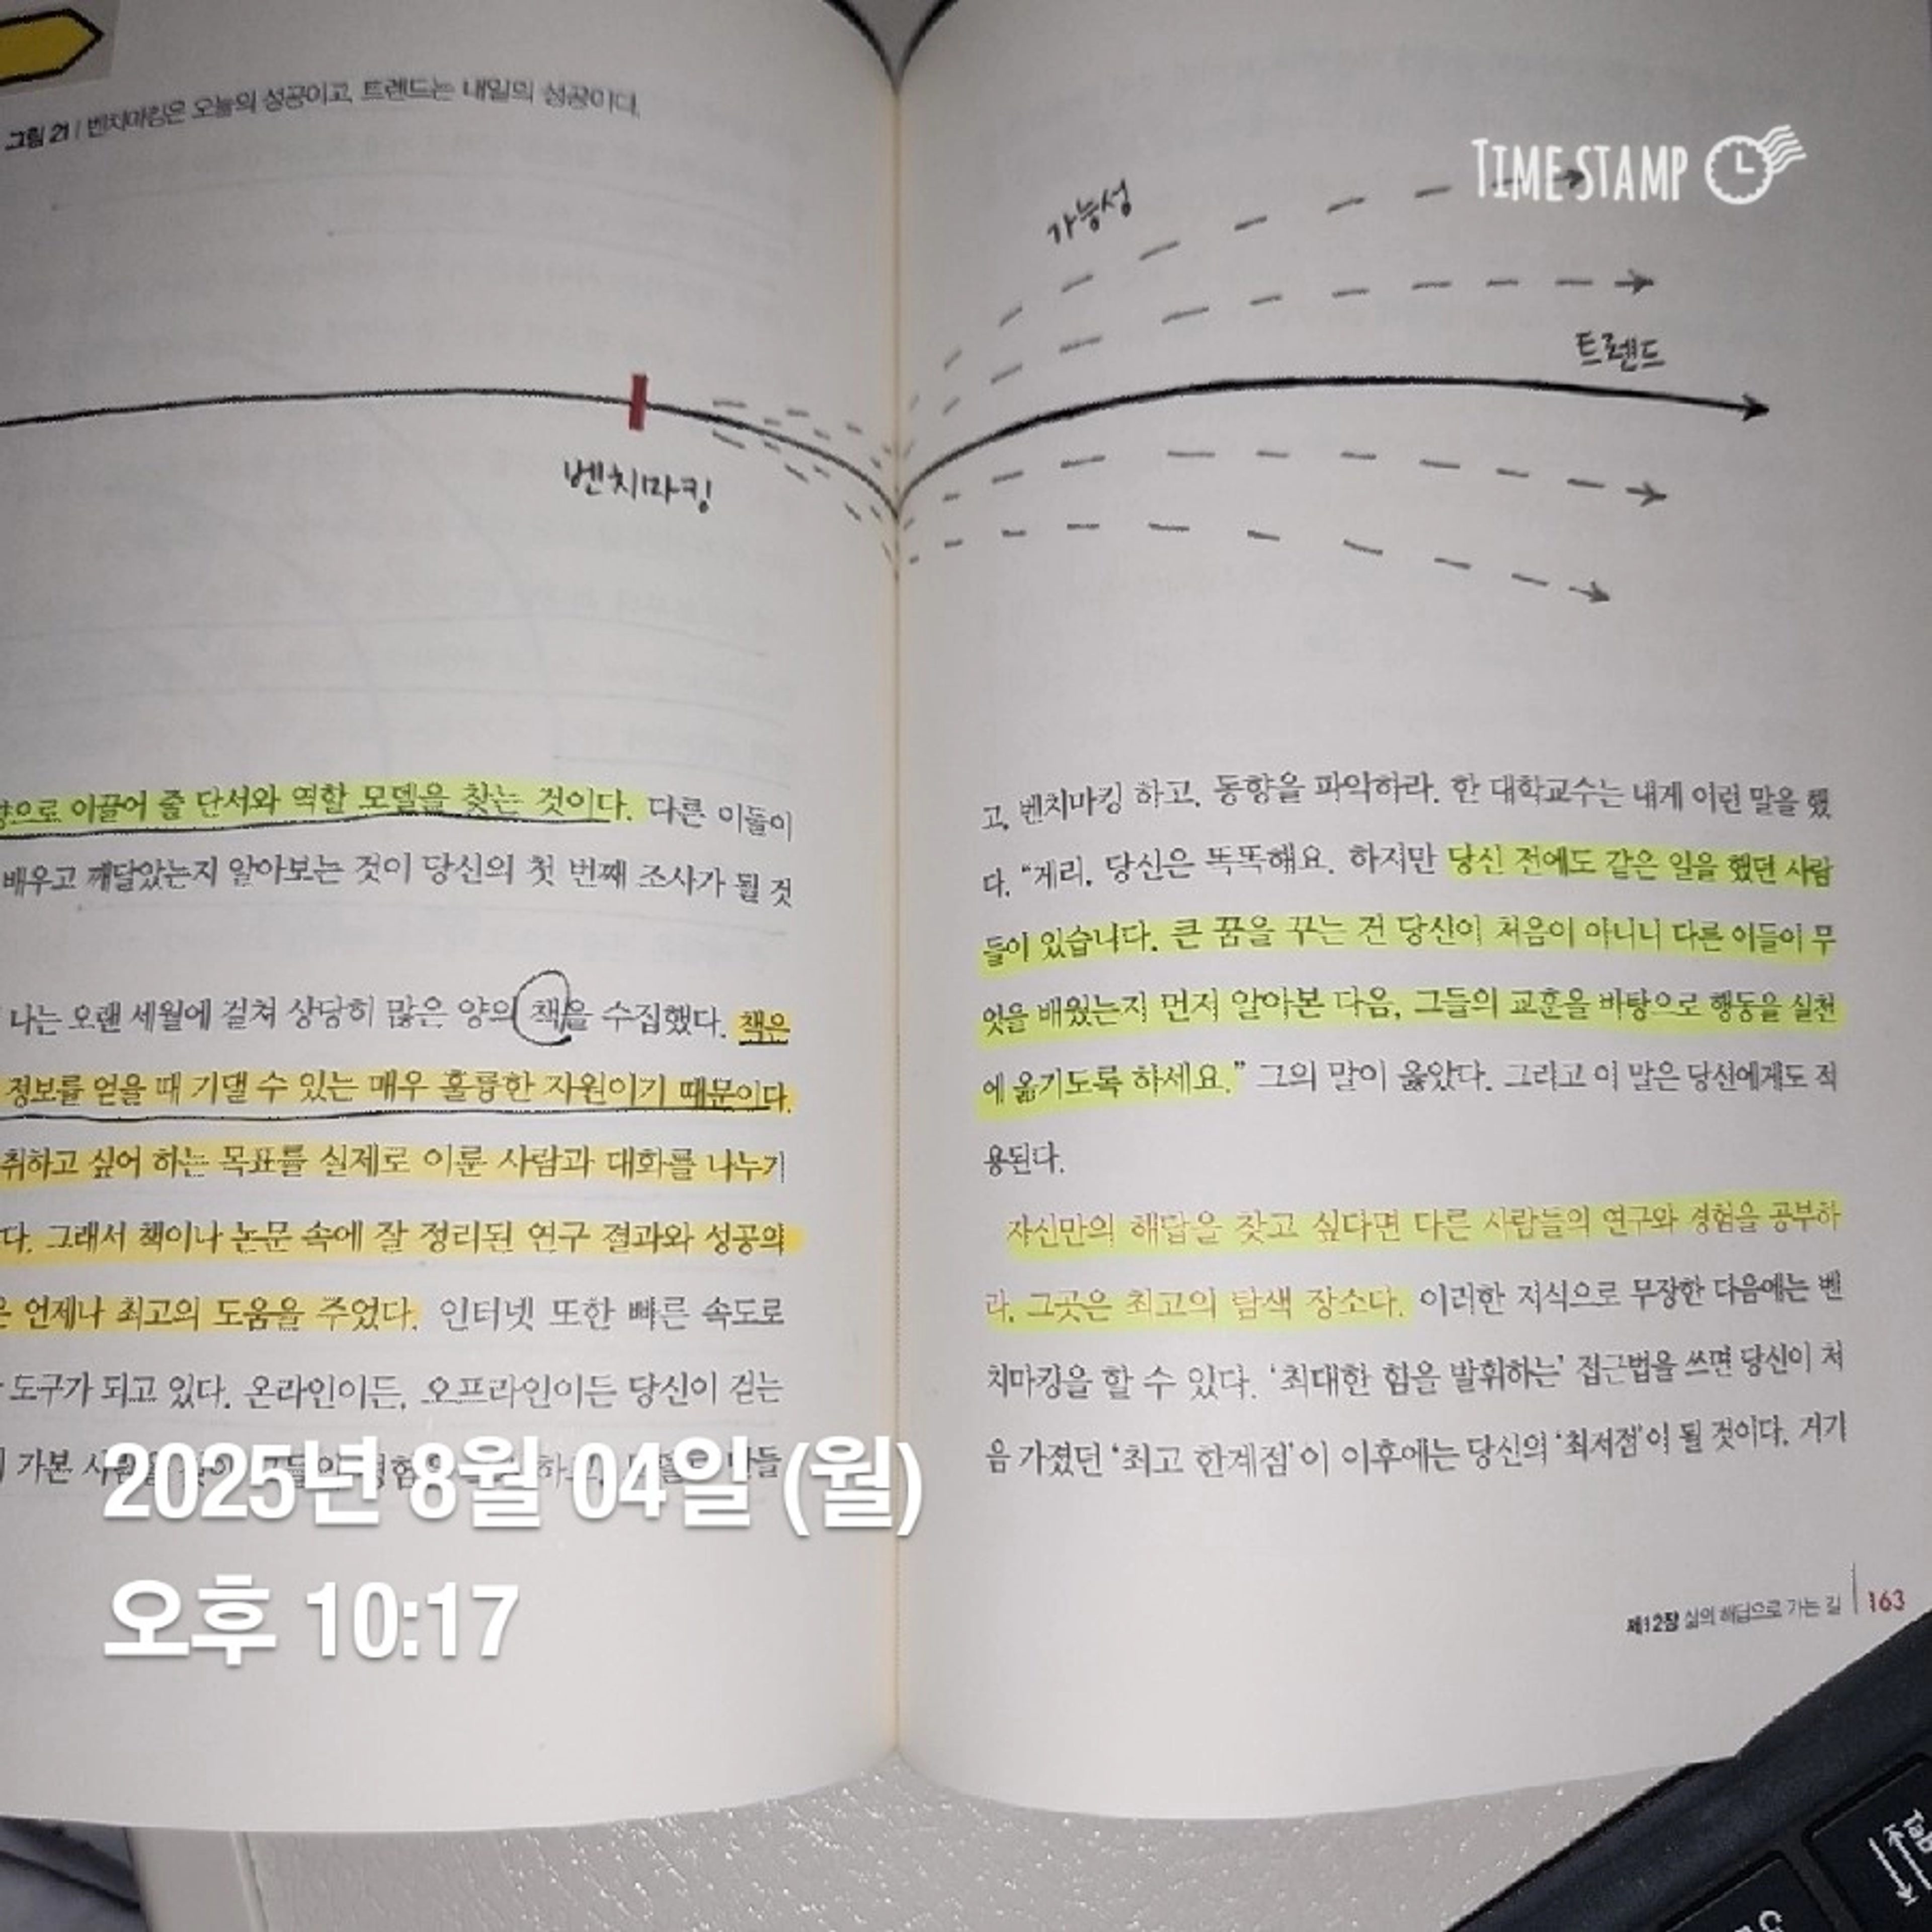 그림 21 / 벤치마킹은 오늘의 성공이고, 트렌드는 내일의 성공이다.
벤치마킹
으로 이끌어 줄 단서와 역할 모델을 찾는 것이다. 다른 이들이
배우고 깨달았는지 알아보는 것이 당신의 첫 번째 조사가 될 것
나는 오랜 세월에 걸쳐 상당히 많은 양의 책을 수집했다. 책은
정보를 얻을 때 기댈 수 있는 매우 훌륭한 자원이기 때문이다.
취하고 싶어 하는 목표를 실제로 이룬 사람과 대화를 나누기
다. 그래서 책이나 논문 속에 잘 정리된 연구 결과와 성공의
은 언제나 최고의 도움을 주었다. 인터넷 또한 빠른 속도로
도구가 되고 있다. 온라인이든, 오프라인이든 당신이 걷는
가본
TIME STAMP
가능성
트렌드
고, 벤치마킹 하고, 동향을 파악하라. 한 대학교수는 내게 이런 말을 했
다. “게리, 당신은 똑똑해요. 하지만 당신 전에도 같은 일을 했던 사람
들이 있습니다. 큰 꿈을 꾸는 건 당신이 처음이 아니니 다른 이들이 무
엇을 배웠는지 먼저 알아본 다음, 그들의 교훈을 바탕으로 행동을 실천
에 옮기도록 하세요.” 그의 말이 옳았다. 그리고 이 말은 당신에게도 적
용된다.
자신만의 해답을 찾고 싶다면 다른 사람들의 연구와 경험을 공부하
라. 그곳은 최고의 탐색 장소다. 이러한 지식으로 무장한 다음에는 벤
치마킹을 할 수 있다. ‘최대한 힘을 발휘하는’ 접근법을 쓰면 당신이 처
음 가졌던 ‘최고 한계점’이 이후에는 당신의 ‘최저점’이 될 것이다. 거기
제12장 삶의 해답으로 가는 길 163
2025년 8월 04일 (월)
오후 10:17